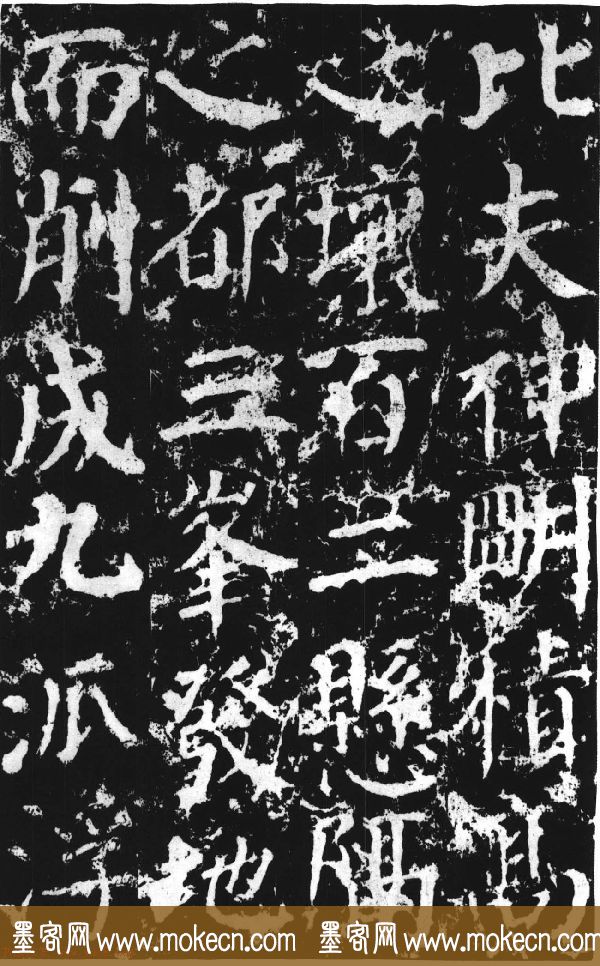 比夫神明積高
之壤百二懸隅
之都三峯發地
而削成九派浮
墨客网 www.mokecn.com 墨客网 www.mokecn.com